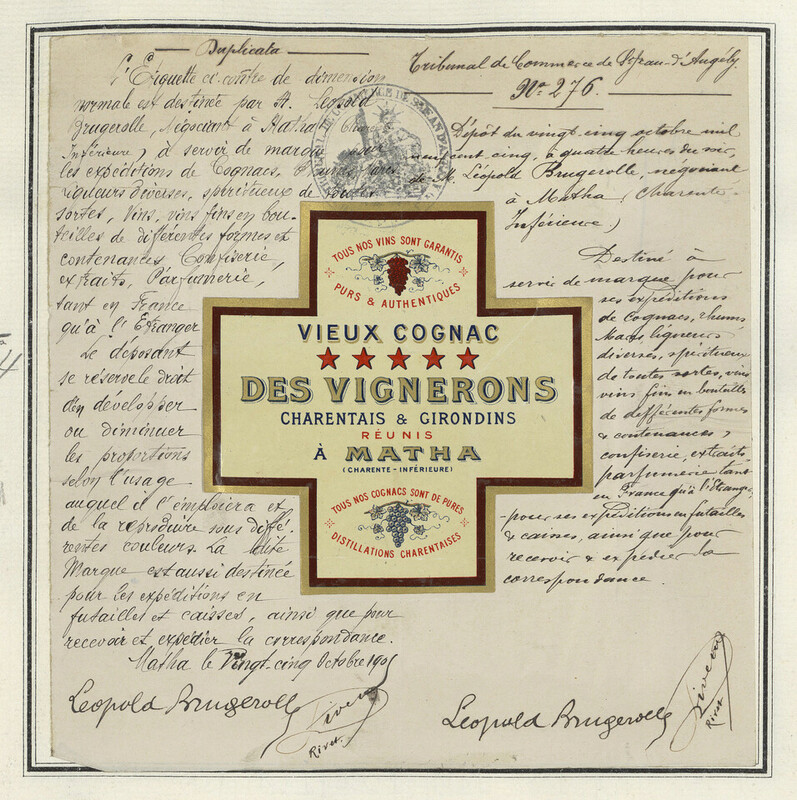 Duplicata
L'Étiquette ci-contre de dimension
normale est destinée par M. Leopold
Brugerolle, Négociant à Matha (Charente
Inférieure), à servir de marque pour
les expéditions de Cognacs, Rhums,
Liqueurs diverses, spiritueux de toutes
sortes, Vins, vins fins en bou-
teilles de différentes formes et
contenances Confiserie,
extraits, Parfumerie,
tant en France
qu'à l'Etranger
Le déposant
se réserve le droit
d'en développer
ou diminuer
les proportions
selon l'usage
auquel il l'emploiera et
de la reproduire sous diffé-
rentes couleurs. La dite
Marque est aussi destinée
pour les expéditions en
futailles et caisses, ainsi que pour
recevoir et expédier la correspondance.
Matha le Vingt-cinq Octobre 1905
Leopold Brugerolle
Rivet
Tribunal de Commerce de St Jean-d'Angély
No 276.
Dépôt du vingt-cinq octobre mil
neuf cent cinq, à quatre heures du soir,
de M. Leopold Brugerolle, négociant
à Matha (Charente-
Inférieure)
Destiné à
servir de marque pour
ses expéditions
de Cognacs, rhums
Marcs, liqueurs
diverses, spiritueux
de toutes sortes, vins
vins fins en bouteilles
de différentes formes
& contenances,
confiserie, extraits,
parfumerie tant
en France qu'à l'étranger,
pour ses expéditions en futailles
& caisses, ainsi que pour
recevoir & expédier la
correspondance.
Leopold Brugerolle
Rivet
TOUS NOS VINS SONT GARANTIS
PURS & AUTHENTIQUES
VIEUX COGNAC
DES VIGNERONS
CHARENTAIS & GIRONDINS
RÉUNIS
À MATHA
(CHARENTE-INFÉRIEURE)
TOUS NOS COGNACS SONT DE PURES
DISTILLATIONS CHARENTAISES